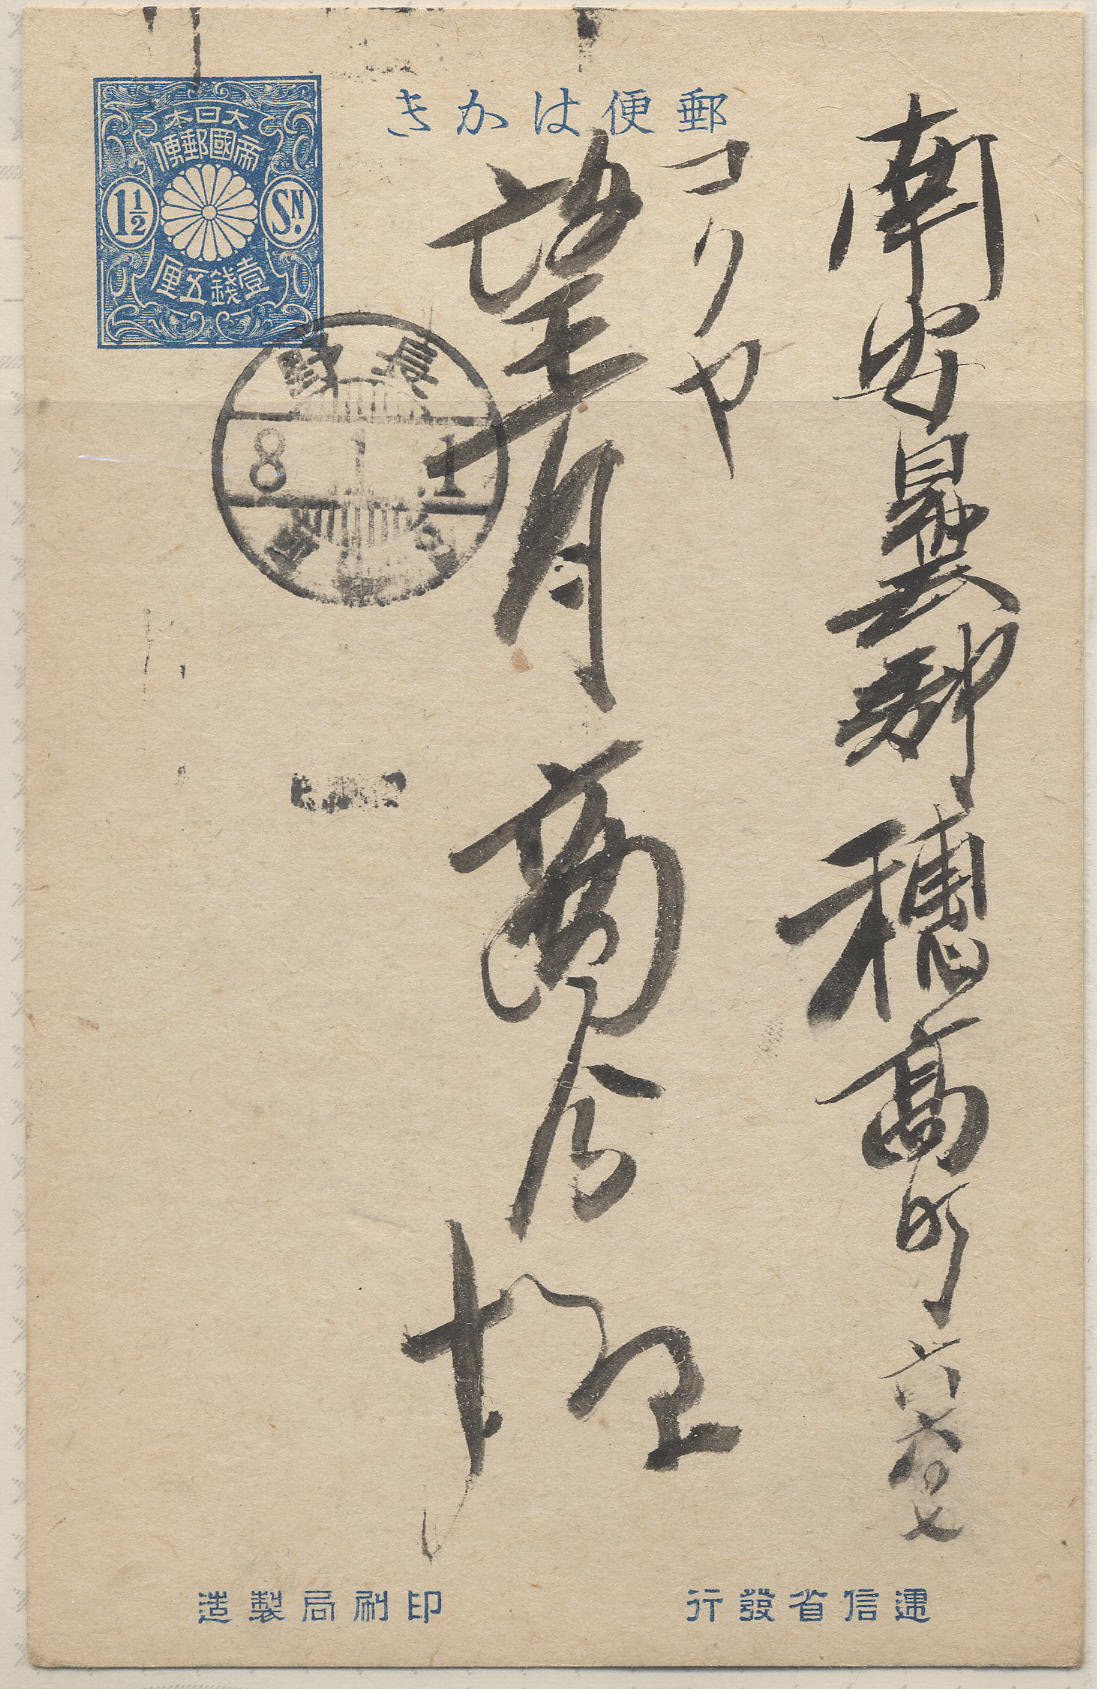 郵便はかき
大日本
帝國郵便
1½ SN.
壹錢五厘
長野
8 1 1
南安曇郡穂高町
コクヤ
望月商会
遞信省發行
印刷局製造